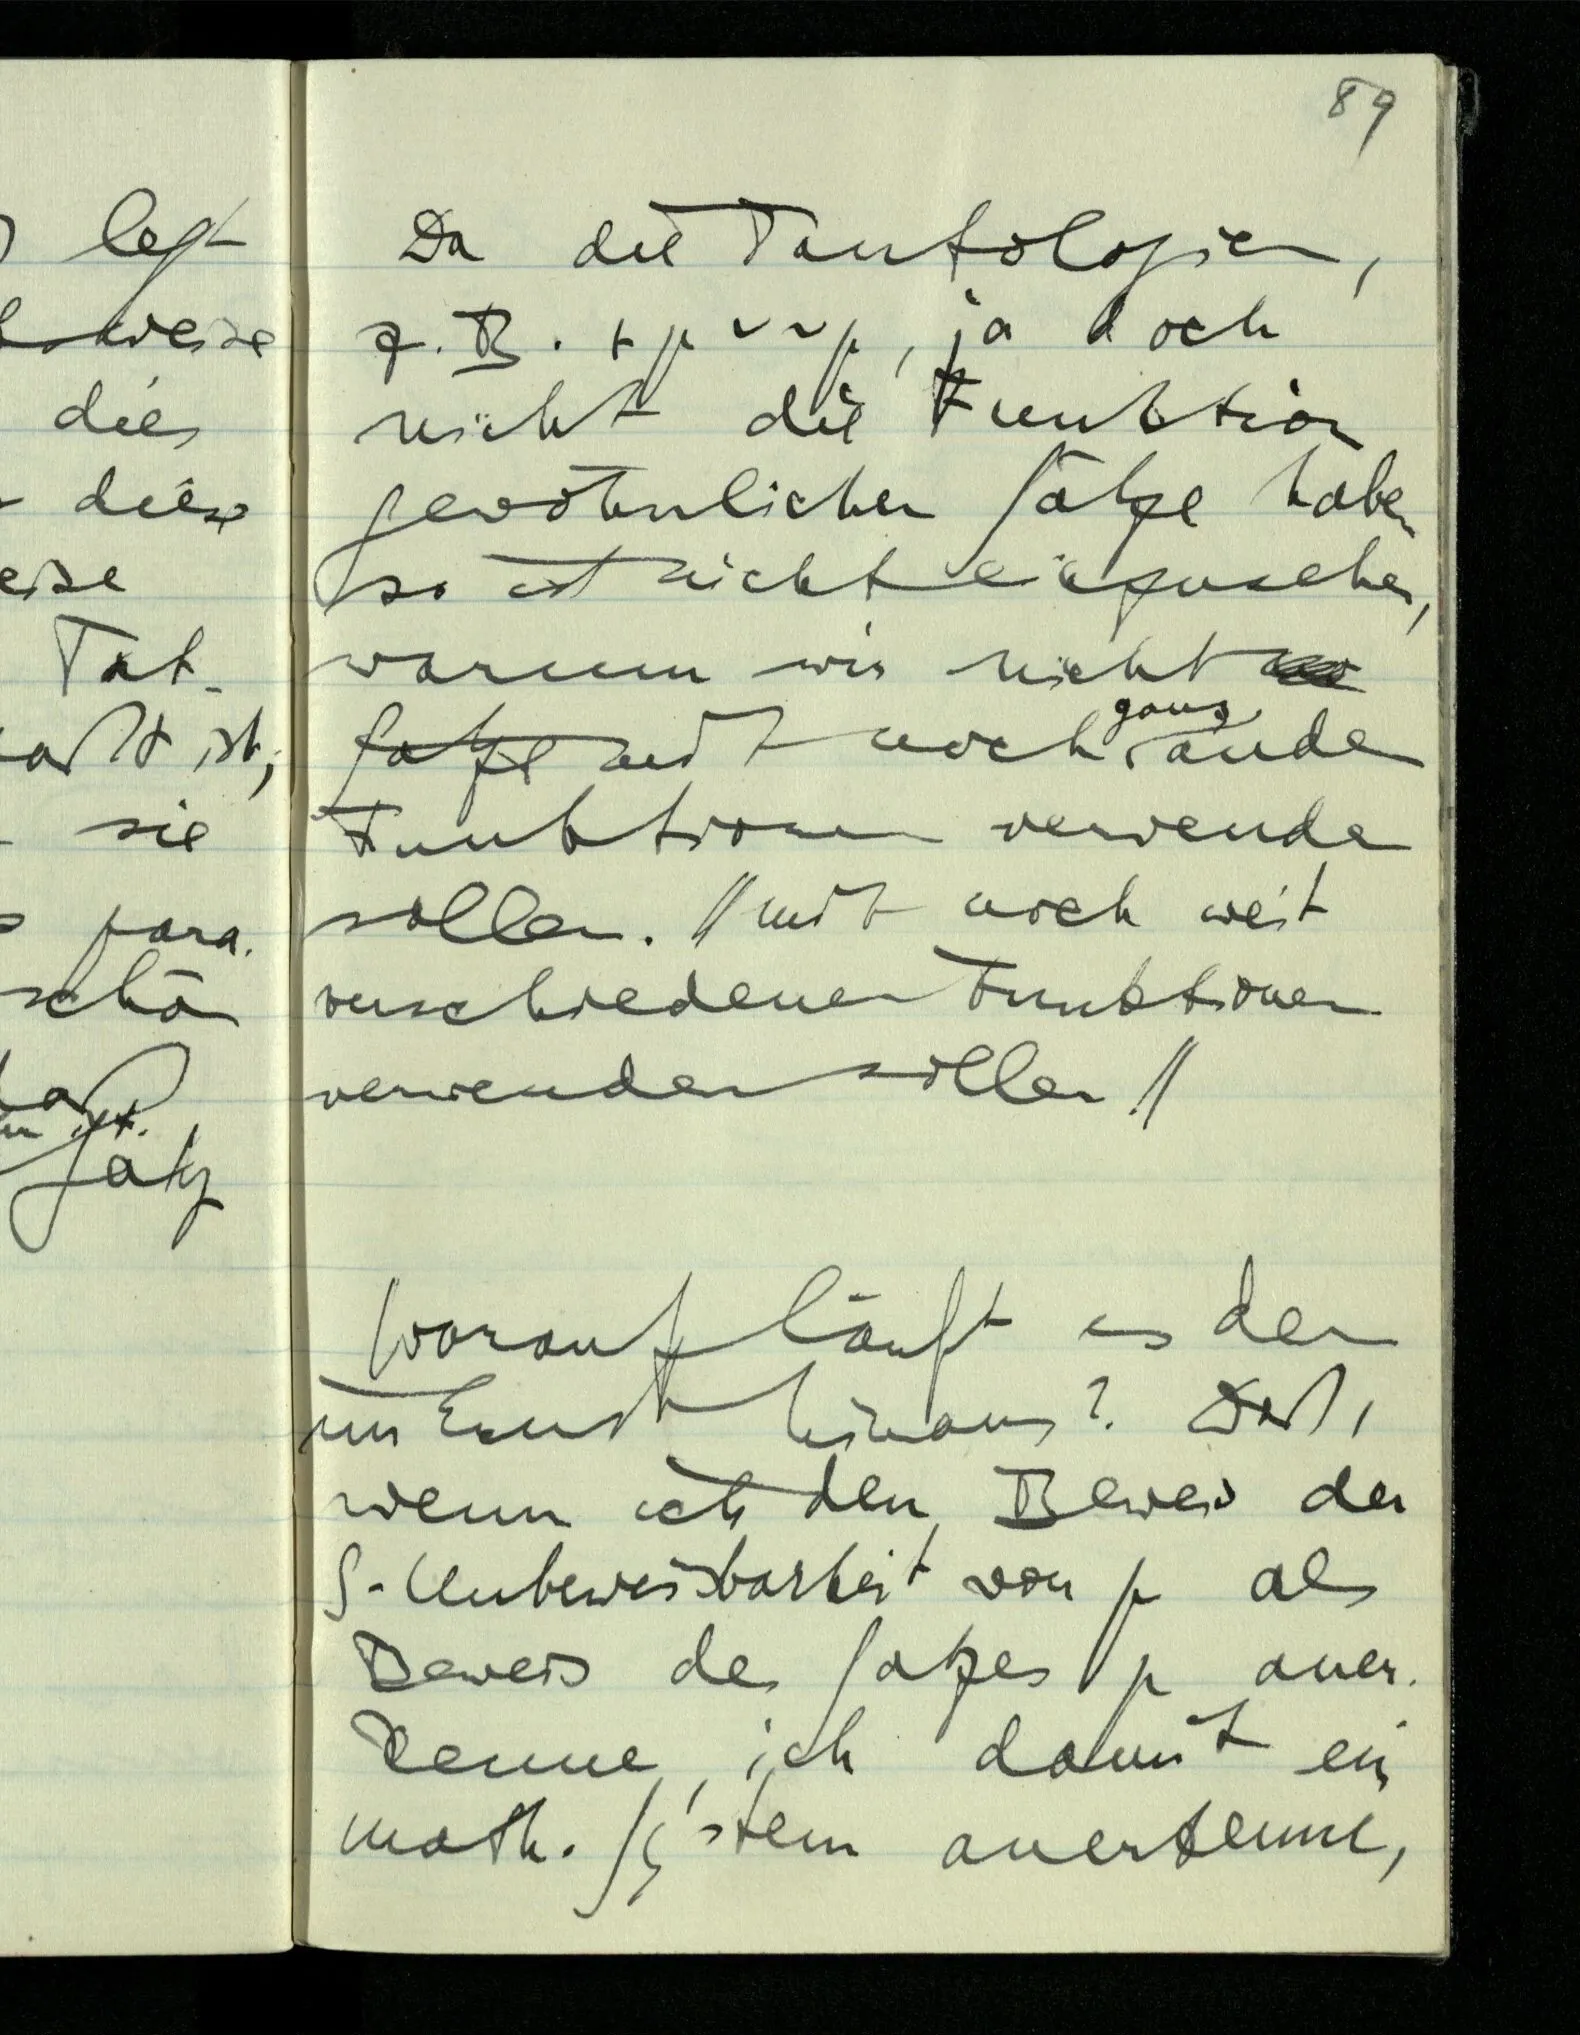 89
legt
dies
diese
eise
Tat-
ist,
sie
para-
schön
Satz
Da die Tautologien,
z.B. ⊢p ∨ ~p, ja doch
nicht die Funktion
gewöhnlicher Sätze haben
so ist nicht einzusehen,
warum wir nicht
Sätze mit noch ganz andern
Funktionen verwenden
sollen. // mit noch weit
verschiedenen Funktionen
verwenden sollen //
Worauf läuft es denn
im Ernst hinaus? Daß,
wenn ich den Beweis der
S-Unbeweisbarkeit von p als
Beweis des Satzes p aner-
kenne, ich damit ein
math. System anerkenne,